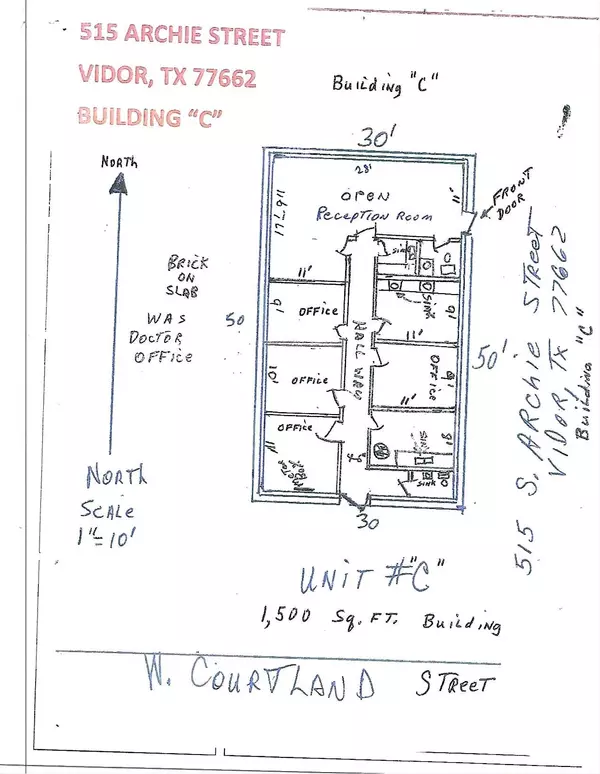 515 ARCHIE STREET
VIDOR, TX 77662
BUILDING “C”
Building "C"
30'
NORTH
28'
OPEN
RECEPTION ROOM
17'-6"
11'
FRONT
DOOR
SINK
11'
BRICK
ON
SLAB
WAS
DOCTOR
OFFICE
50
9'
OFFICE
SINK
9'
11'
HALL WAY
50'
10'
OFFICE
OFFICE
9'
11'
OFFICE
11'
SINK
9'
SINK
30
515 S. ARCHIE STREET
VIDOR, TX 77662
Building "C"
NORTH
SCALE
1"=10'
UNIT #"C"
1,500 Sq. FT. Building
W. COURTLAND STREET